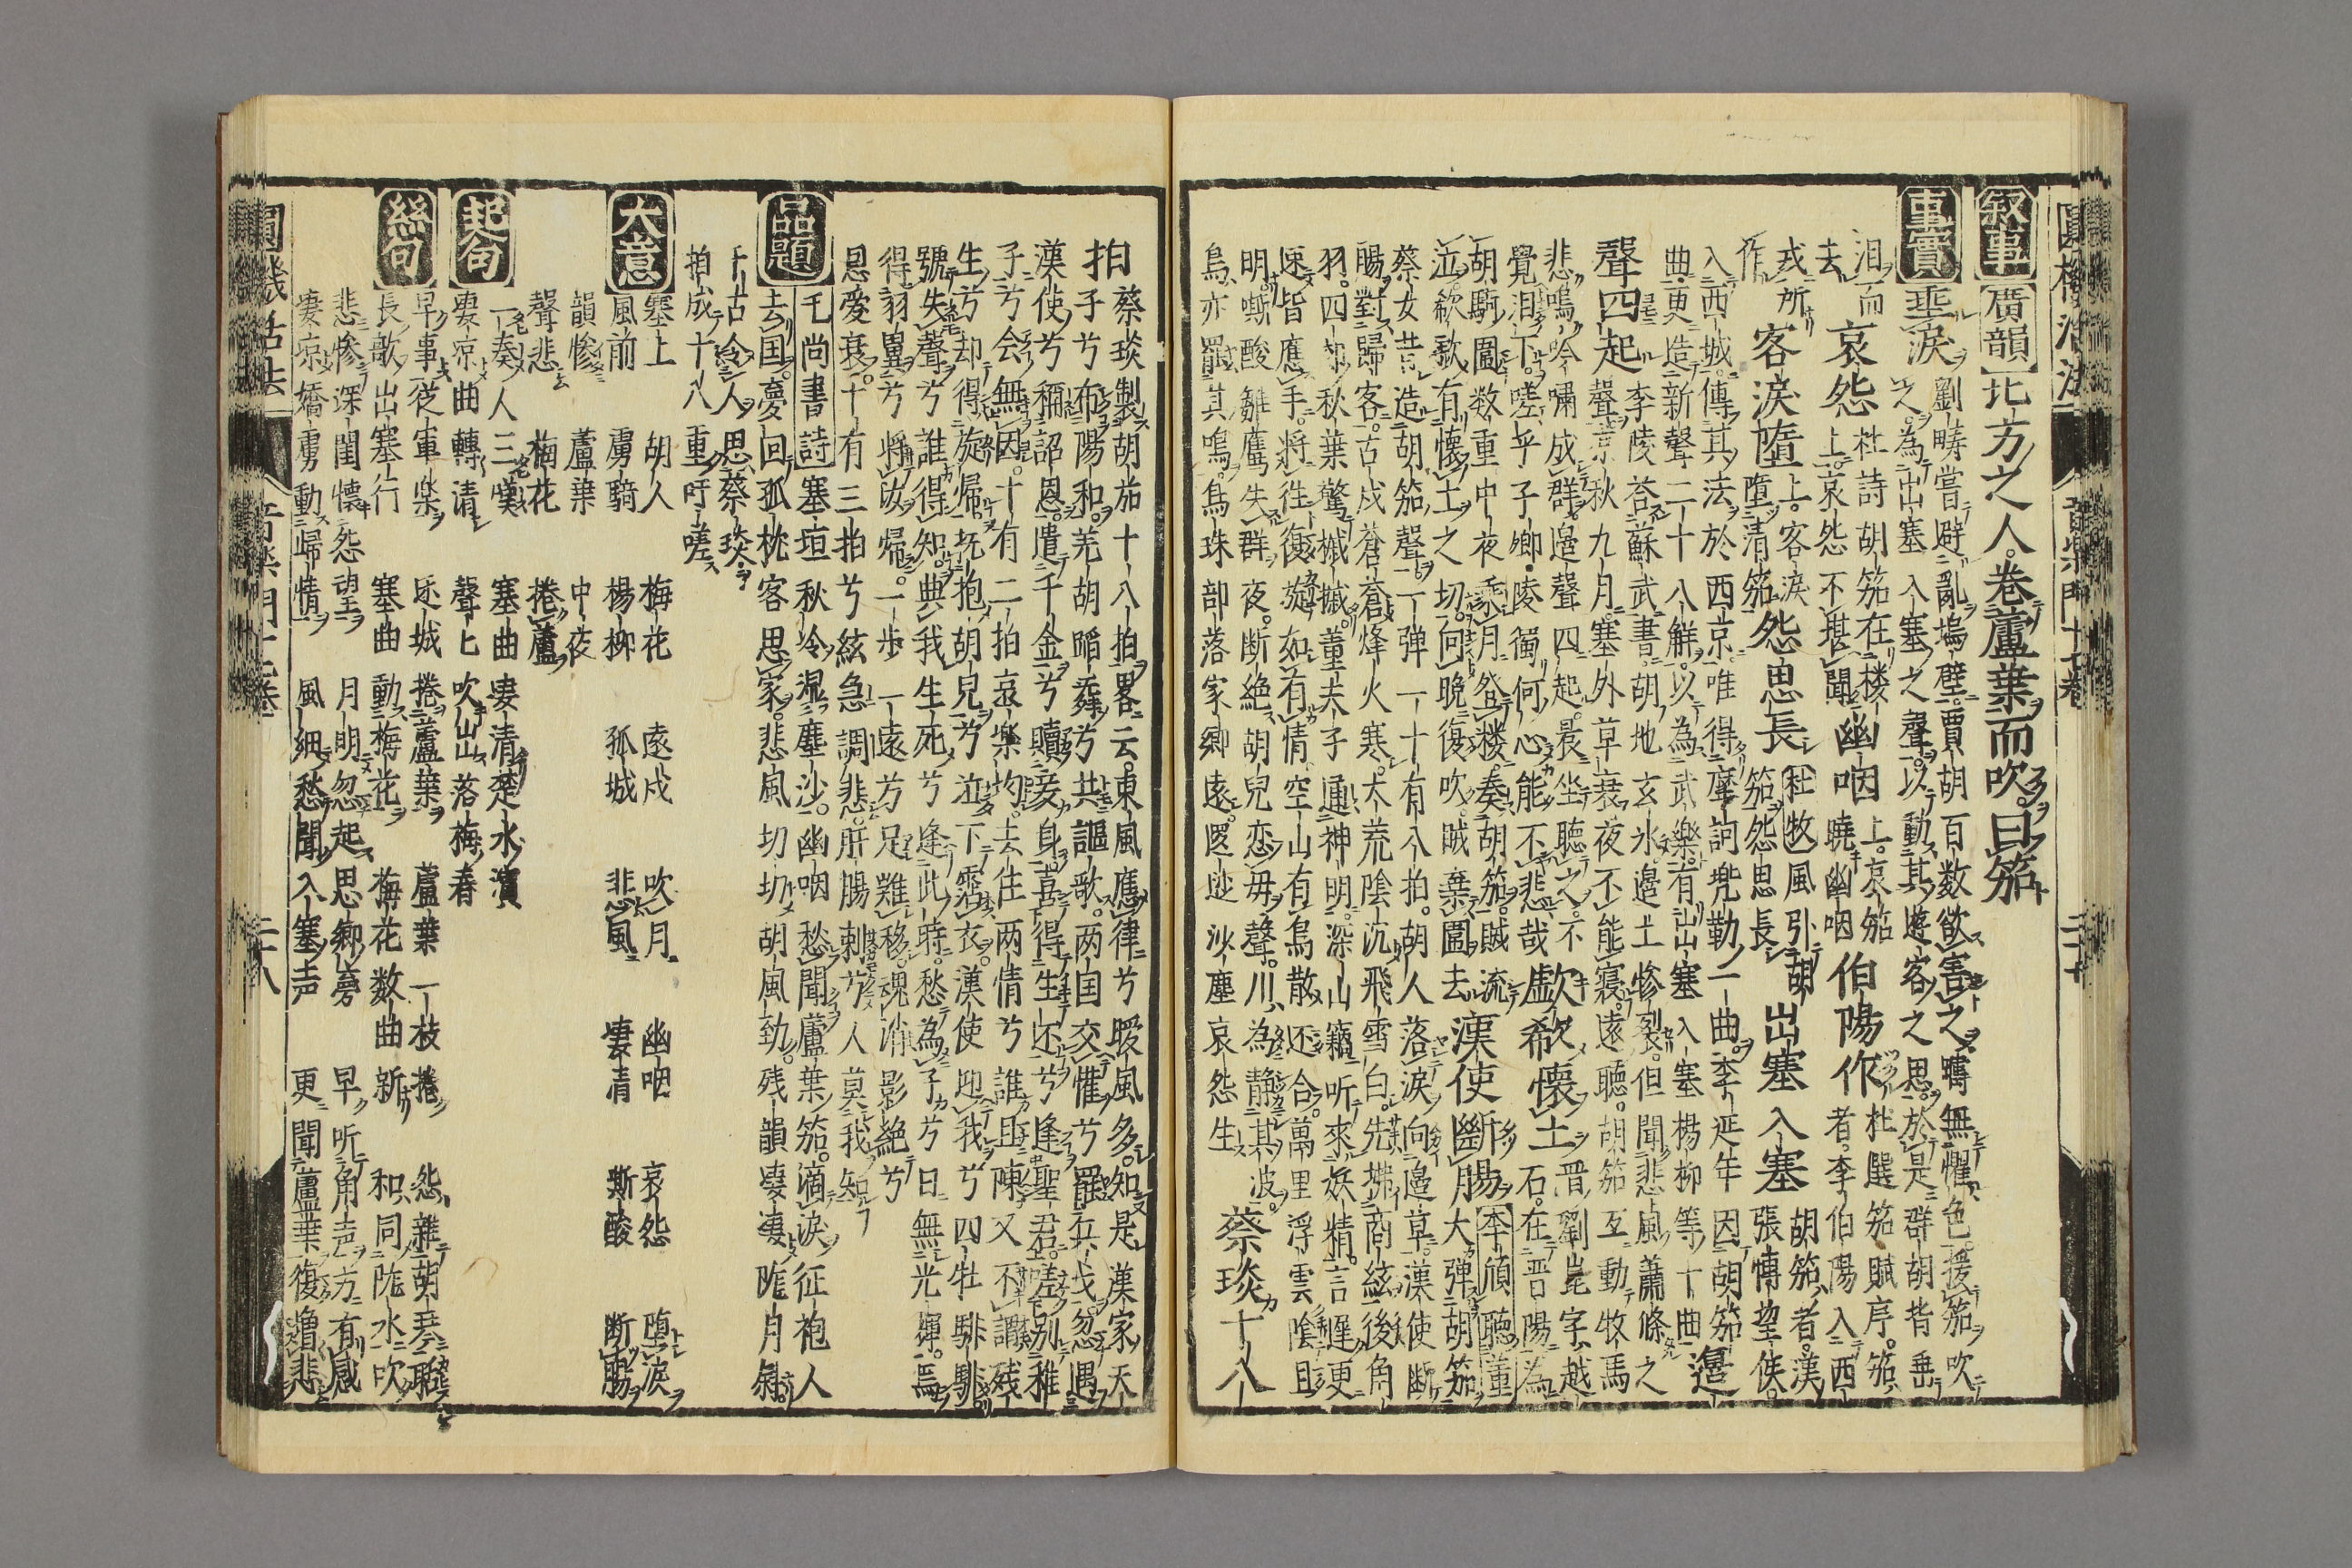 敘事
廣韻
北方之人。卷蘆葉而吹。曰笳
事實
垂淚
劉疇嘗避亂塢壁。賈胡百数欲害之。疇無懼色。援笳吹
之。為出塞入塞之聲。以動其遊客之思。於是群胡皆垂
泪而
去
哀怨
杜詩胡笳在楼
上。哀怨不堪聞
幽咽
上。哀笳
曉幽咽
伯陽作
杜選笳賦序。笳
者。李伯陽入西
戎所
作
客淚墮
上。客淚
墮清笳
怨思長
杜牧風引胡
笳怨思長
出塞入塞
胡笳者。漢
張慱望侯。
入西城。傳其法於西京。唯得摩訶兜勒二曲。李延年因胡笳
曲更造新聲二十八解。以為武樂。有出塞入塞楊柳等十曲
邊
聲四起
李陵荅蘇武書。胡地玄氷。邊土慘裂。但聞悲風蕭條之
聲。涼秋九月。塞外草衰。夜不能寢。遠聽。胡笳互動牧馬
悲鳴。吟嘯成群。邊聲四起。晨坐聽之。不
覺泪下。嗟乎子卿。陵獨何心。能不悲哉
歔欷懷土
晋劉崑字越
石。在晋陽。為
胡騎圍数重。中夜乘月。登楼。奏胡笳。賊流
泣。欷歔有懐土之切。向晚復吹。賊棄圍去
漢使斷腸
李頎聽董
大彈胡笳
蔡女昔造胡笳聲。一弾一十有八拍。胡人落淚向邊草。漢使斷
腸對歸客。古戍蒼蒼烽火寒。大荒陰沉飛雪白。先拂商絃後角
羽。四郊秋葉驚摵摵。董夫子通神明。深山竊听來妖精。言遅更
速皆應手。将往復旋如有情。空山有鳥散还合。萬里浮雲陰且
明。嘶酸雛鴈失群夜。断絶胡兒恋母聲。川為静其波。
鳥亦罷其鳴。烏珠部落家郷遠。邏逤沙塵哀怨生
蔡琰十八
拍
蔡琰製胡笳十八拍。畧云。東風應律兮暖風多。知是漢家天
子兮布陽和。羌胡蹈舞兮共謳歌。两国交懽兮罷兵戈。忽遇
漢使兮稱詔恩。遣千金兮贖妾身。喜得生还兮逢聖君。嗟别稚
子兮会無因。十有二拍哀樂均。去住两情兮誰且陳。又不謂残
生兮却得旋帰。抚抱胡兒兮泣下霑衣。漢使迎我兮四牡騑騑。
號失聲兮誰得知。與我生死兮逢此時。愁為子兮日無光輝。焉
得羽翼兮将汝帰。一步一遠兮足難移。魂消影絶兮
恩愛衰。十有三拍兮絃急調悲。肝膓刺兮人莫我知
品題
毛尚書詩
塞垣秋冷濕塵沙。幽咽愁聞蘆葉笳。滴淚征袍人
去国。夢回孤枕客思家。悲風切切胡風勁。残韻凄凄陇月斜。
千古令人思蔡琰
拍成十八重吁嗟
大意
塞上 胡人 梅花 遠戍 吹月 幽咽 哀怨 墮淚
風前 虜騎 楊柳 孤城 悲風 凄清 斯酸 断膓
韻慘 蘆葉 中夜
聲悲 梅花 捲蘆
起句
一奏人三嘆 塞曲凄清楚水濱
凄凉曲轉清 聲七吹出落梅春
絲句
早事従軍楽 还城捲蘆葉 蘆葉一枝捲 怨雜胡琴聯
長歌出塞行 塞曲動梅花 梅花数曲新 和同陇水吹
悲慘深閨懐怨望 月明忽起思郷夢 早听角声方有感
凄凉嬌虜動歸情 風細愁聞入塞声 更聞蘆葉復増悲
二十八